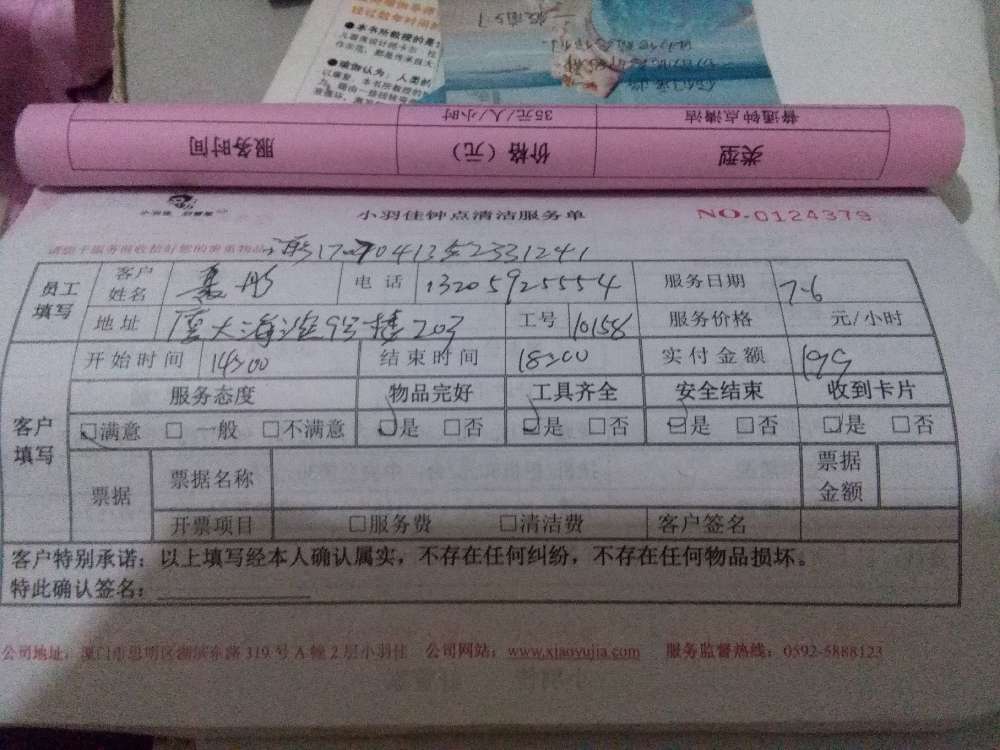 ●本书所教授的是
●瑜伽认为：人类的
普通钟点清洁 35元/人/小时
类型 价格（元） 服务时间
小羽佳钟点清洁服务单 NO.0124379
请您于服务前收拾好您的贵重物品
员工填写 客户姓名 电话 13205925554 服务日期 7.6
地址 厦大海滨9号楼203 工号 10158 服务价格 元/小时
客户填写 开始时间 14:00 结束时间 18:00 实付金额 199
服务态度 物品完好 工具齐全 安全结束 收到卡片
□满意 □一般 □不满意 □是 □否 □是 □否 □是 □否 □是 □否
票据 票据名称 票据金额
开票项目 □服务费 □清洁费 客户签名
客户特别承诺：以上填写经本人确认属实，不存在任何纠纷，不存在任何物品损坏。
特此确认签名：
公司地址：厦门市思明区湖滨东路319号A幢2层小羽佳 公司网站：www.xiaoyujia.com 服务监督热线：0592-5888123